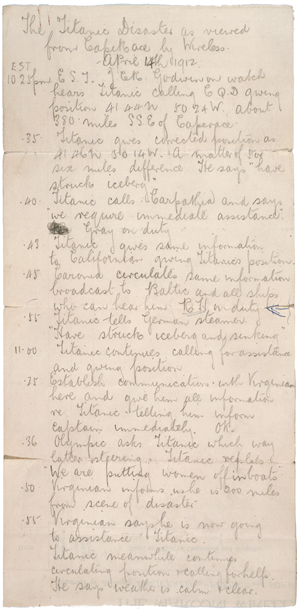 The Titanic Disaster as viewed
from Cape Race by Wireless.
April 14th 1912.
EST
10 25pm E S T. J C R Godwin on watch
hears Titanic calling C Q D giving
position 41.44 N 50.24 W. about
380 miles SSE of Caperace
.35 Titanic gives corrected position as
41.46 N 50.14 W. A matter of 5 or
six miles difference. He says have
struck iceberg
.40 Titanic calls Carpathia and says
we require immediate assistance.
Gray on duty
.43 Titanic gives same information
to Californian giving Titanic's position.
.45 Caronia circulates same information
broadcast to Baltic and all ships
who can hear him. on duty
.55 Titanic tells German steamer
Have struck iceberg and sinking
11-00 Titanic continues calling for assistance
and giving position
.25 Establish communication with Virginian
here and give him all information
re Titanic telling him inform
captain immediately. OK.
.36 Olympic asks Titanic which way
latter steering. Titanic replies
We are putting women off in boats
.50 Virginian informs us he is 200 miles
from scene of disaster
.55 Virginian says he is now going
to assistance Titanic.
Titanic meanwhile continues
circulating position & calling for help.
He says weather is calm & clear.